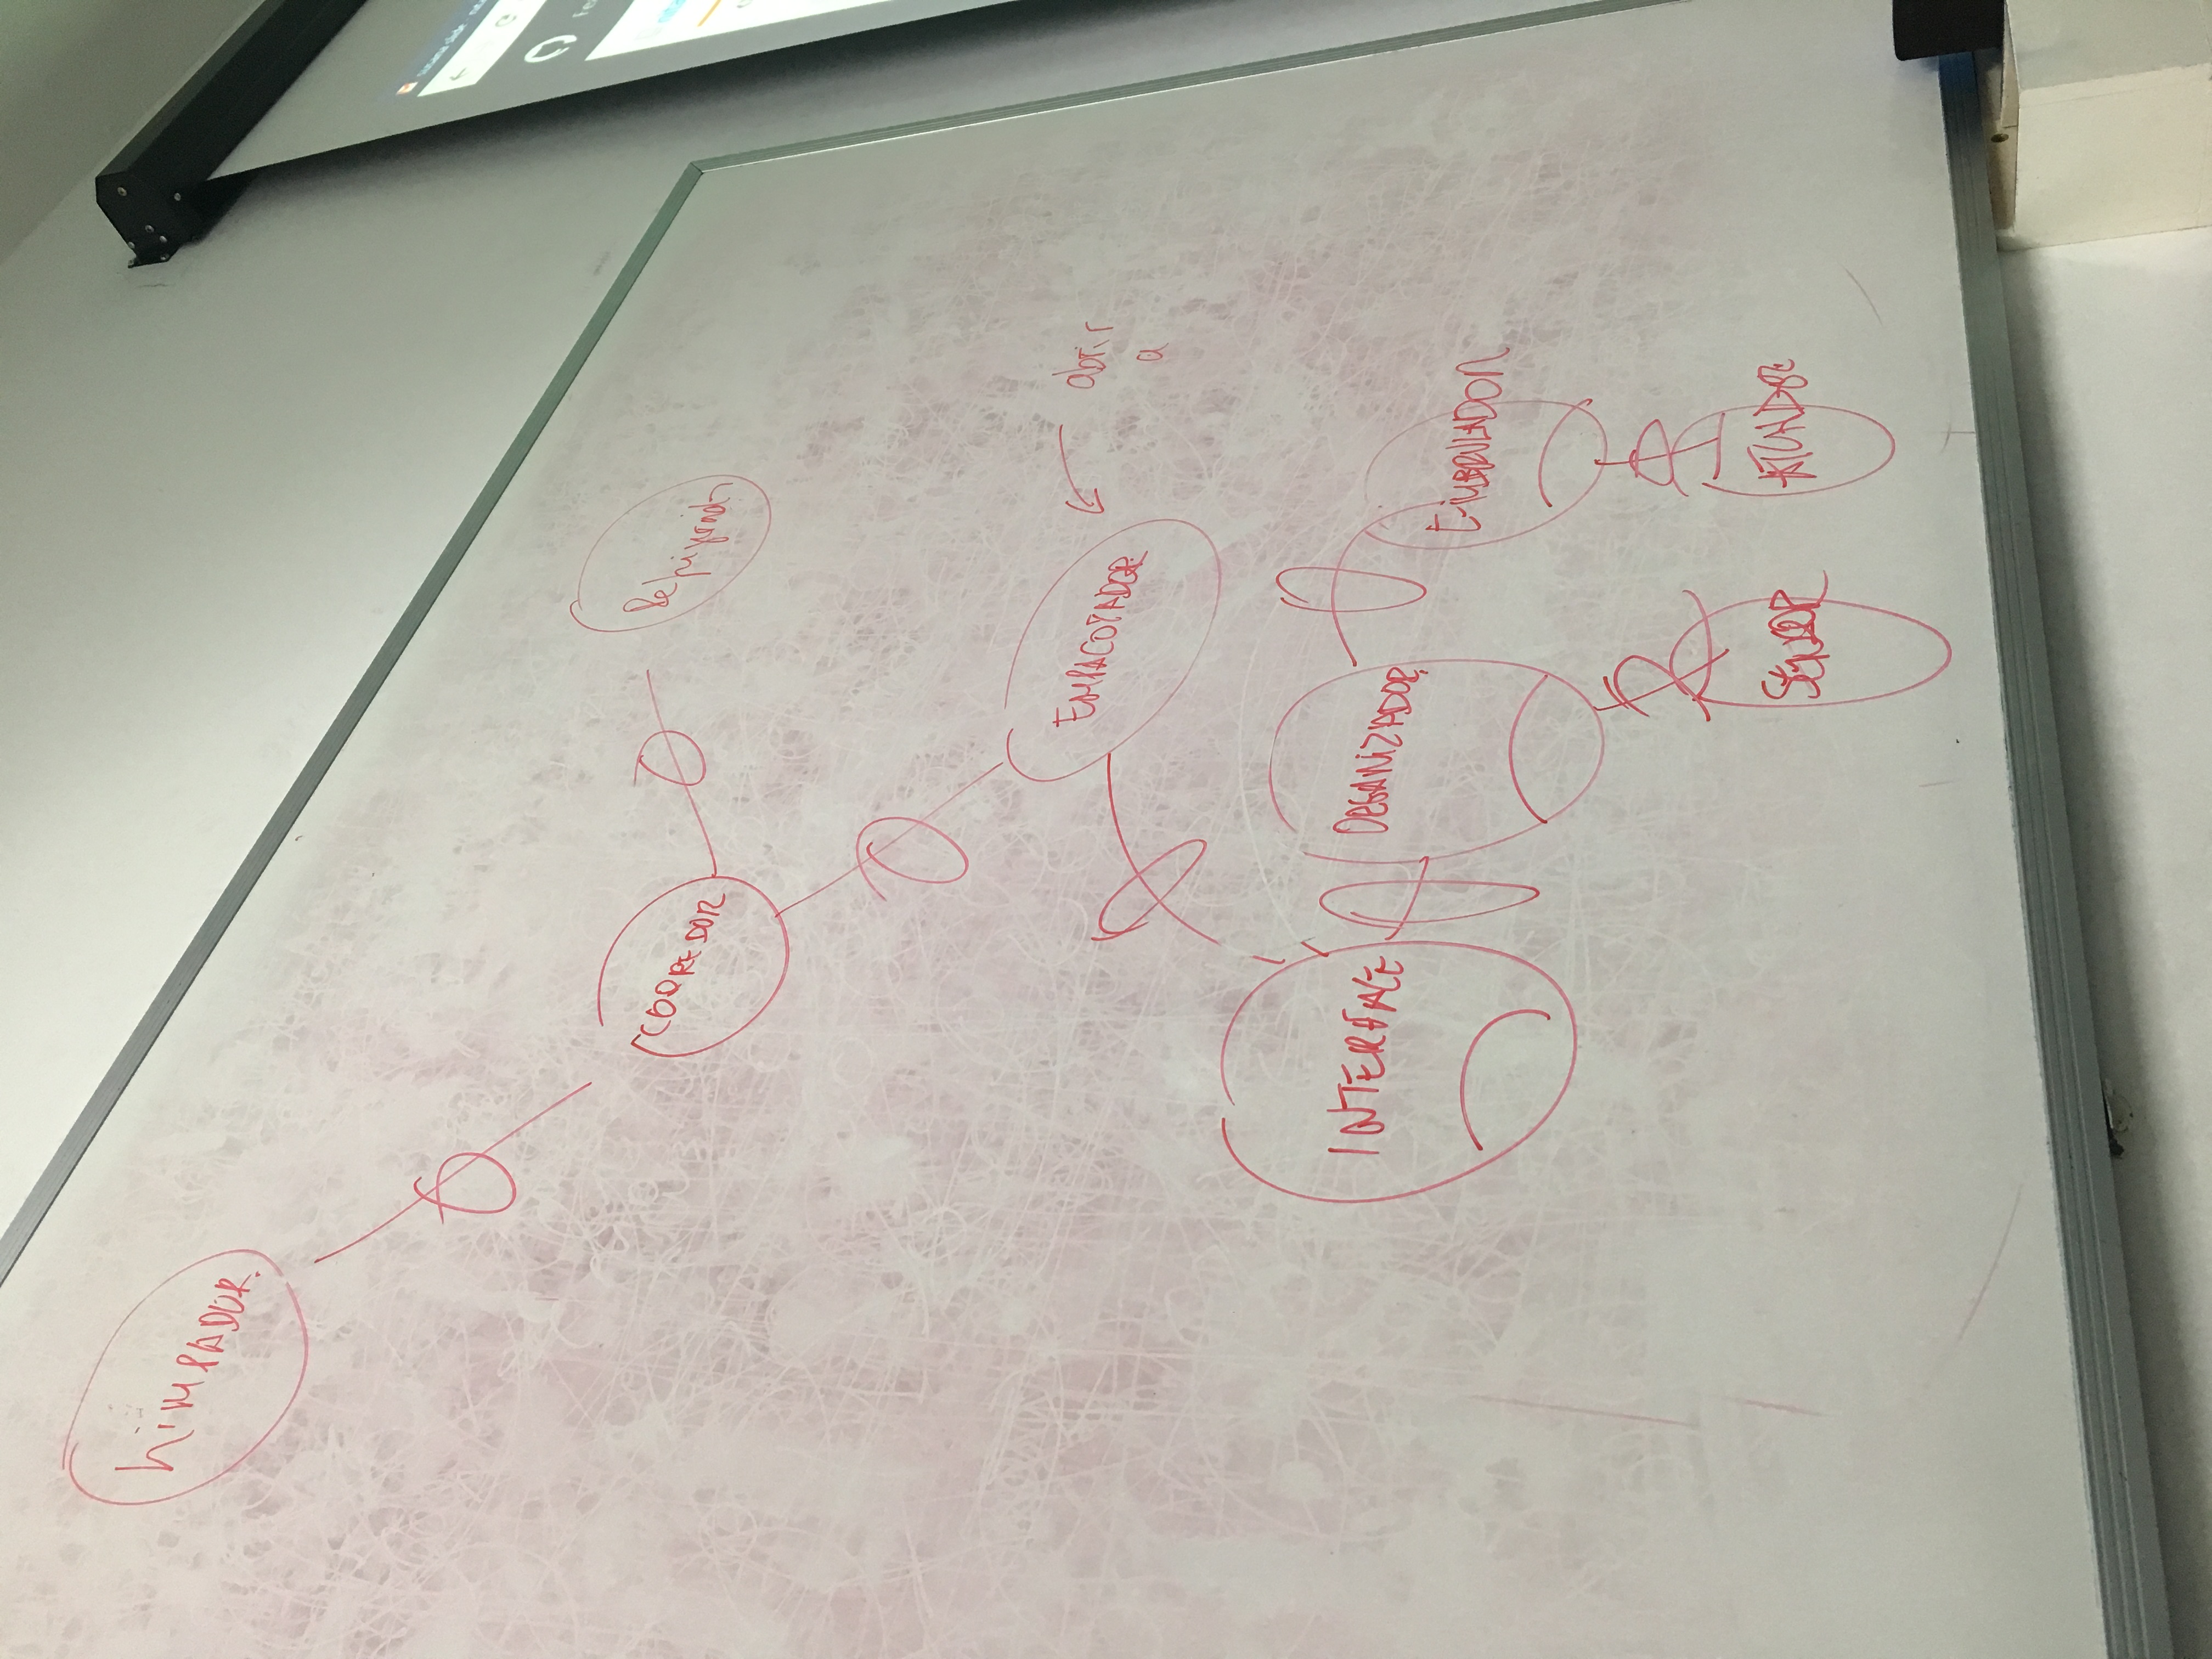 LIMPADOR
CORREDOR
Refrigerador
EMPACOTADOR
abrir
a
INTERFACE
ORGANIZADOR
EMBRULADOR
SENSOR
ATUADOR